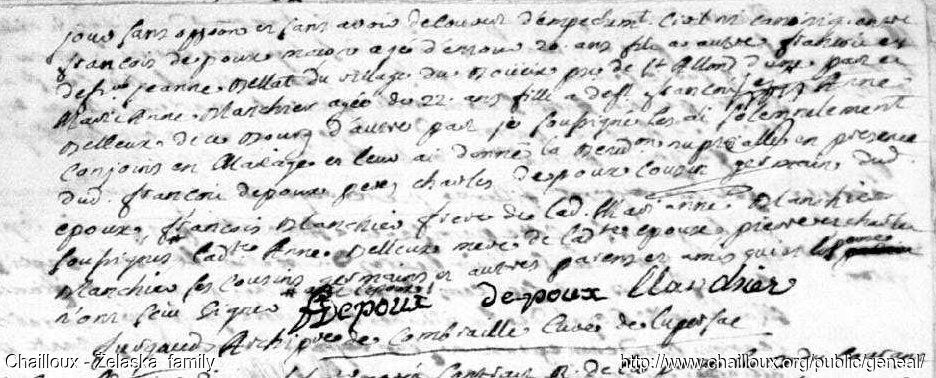 jour sans opp̃on et sans avoir decouvert d'empechem.t Civil ni canoniq. entre
françois depoux majeur agé d'environ 30. ans fils a autre françois et
def.te jeanne Mellat du village du par.se de St d'une part et
Marie Anne Blanchier agée de 22. ans fille a def.t françois et Anne
Belleux de ce Bourg d'autre part je soussigné les ai solemnelement
Conjoints en Mariage et leur ai donné la Bened.on nuptialle en presence
dud. françois depoux pere, charles depoux cousin germain dud.
epoux, françois Blanchier frere de lad. Marianne Blanchier
soussignés lad.te Anne Belleux mere de lad.te epouse pierre et charles
Blanchier ses Cousins germains et autres parens et amis qui
n'ont sceu signer Depoux depoux Blanchier
Archip.re de Combraille Curé de Lupersac
Chailloux - Żelaska family
http://www.chailloux.org/public/geneal/